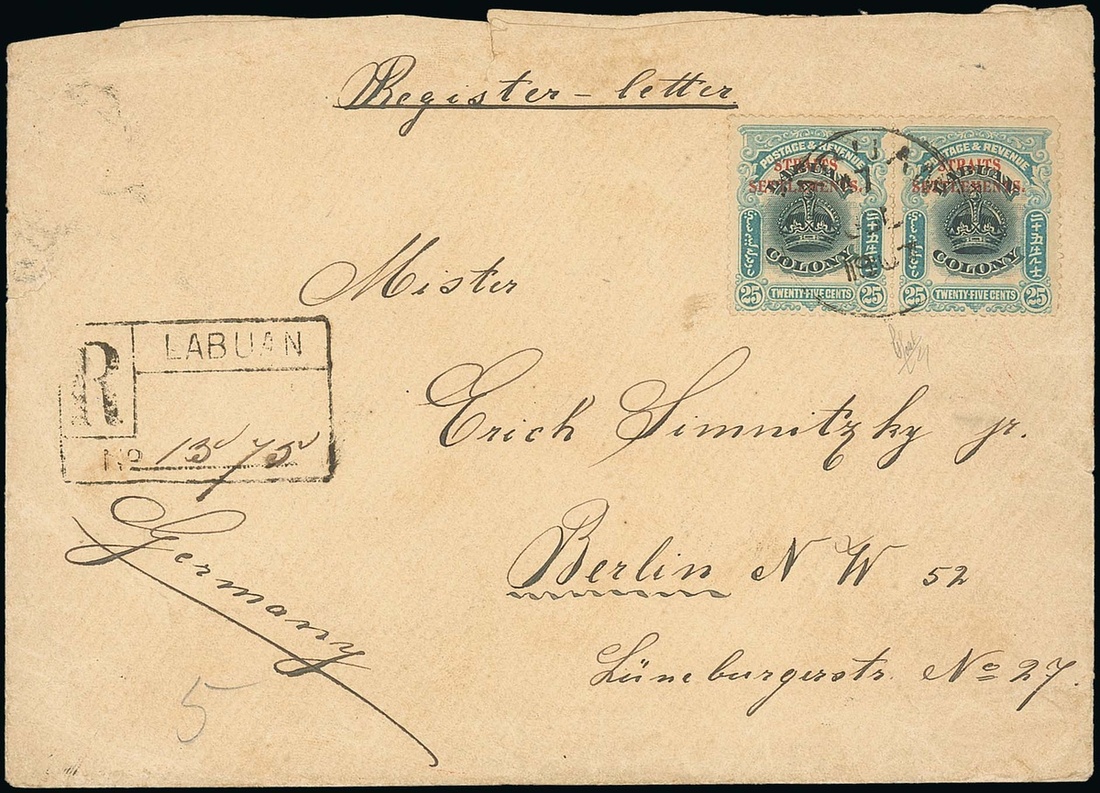 Register-letter
POSTAGE & REVENUE
STRAITS
SETTLEMENTS.
LABUAN
COLONY
二十五先士
25 TWENTY-FIVE CENTS 25
POSTAGE & REVENUE
STRAITS
SETTLEMENTS.
LABUAN
COLONY
二十五先士
25 TWENTY-FIVE CENTS 25
Mister
R LABUAN
No
Erich Simnitzky jr.
Germany
Berlin N W 52
Lüneburgerstr. No 27.
5